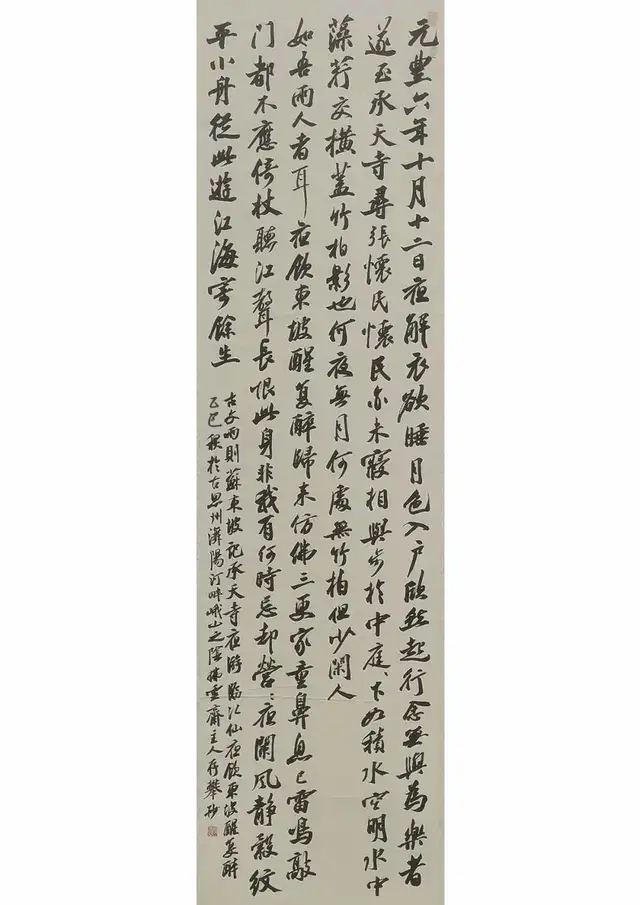 元豐六年十月十二日夜解衣欲睡月色入户欣然起行念無與為樂者
遂至承天寺尋張懷民懷民亦未寢相與步於中庭〻下如積水空明水中
藻荇交横蓋竹柏影也何夜無月何處無竹柏但少閑人
如吾兩人者耳 夜飲東坡醒复醉歸来仿佛三更家童鼻息已雷鳴敲
门都不應倚杖聽江聲長恨此身非我有何時忘却營〻夜闌風静縠紋
平小舟從此逝江海寄餘生
古文两則蘇東坡記承天寺夜游臨江仙夜飲東坡醒复醉
乙巳秋於古思州陽河畔峨山之陰齋主人存攀抄